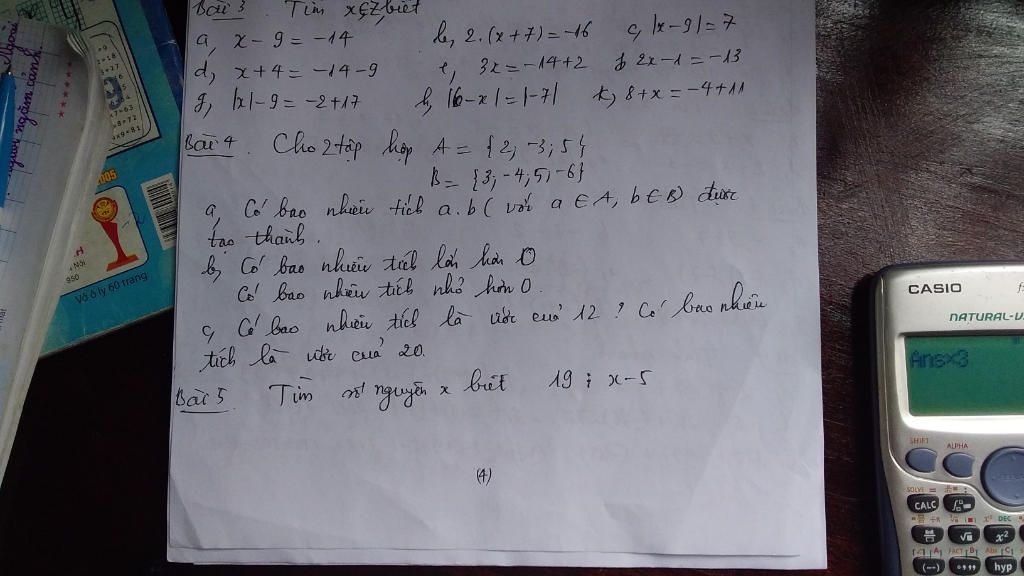 Bài 3. Tìm x∈Z, biết
a, x – 9 = –14 b, 2.(x+7) = –16 c, |x–9| = 7
d, x+4 = –14–9 e, 3x = –14+2 f, 2x–1 = –13
g, |x|–9 = –2+17 h, |6–x| = |–7| k, 8+x = –4+11
Bài 4. Cho 2 tập hợp A = {2; –3; 5}
B = {3; –4; 5; –6}
a, Có bao nhiêu tích a.b (với a ∈ A, b ∈ B) được
tạo thành.
b, Có bao nhiêu tích lớn hơn 0
Có bao nhiêu tích nhỏ hơn 0.
c, Có bao nhiêu tích là ước của 12? Có bao nhiêu
tích là ước của 20.
Bài 5. Tìm số nguyên x biết 19 ⋮ x–5
(4)
2005
Vở ô ly 60 trang
CASIO
NATURAL-V
Ans×3
SHIFT ALPHA
SOLVE
CALC
DEC
x²
FACT
Abs
(–) hyp